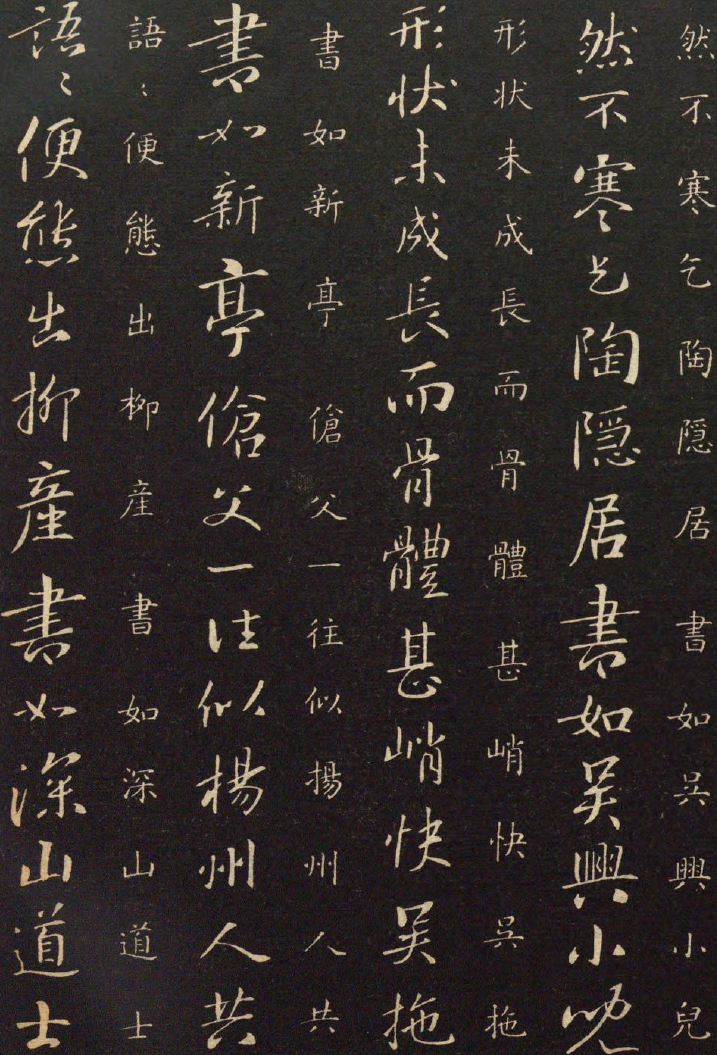 然不寒乞陶隱居書如吳興小兒
然不寒乞陶隱居書如吳興小兒
形狀未成長而骨體甚峭快吳拖
形狀未成長而骨體甚峭快吳拖
書如新亭傖父一往似揚州人共
書如新亭傖父一往似楊州人共
語〻便態出柳産書如深山道士
語〻便態出柳産書如深山道士